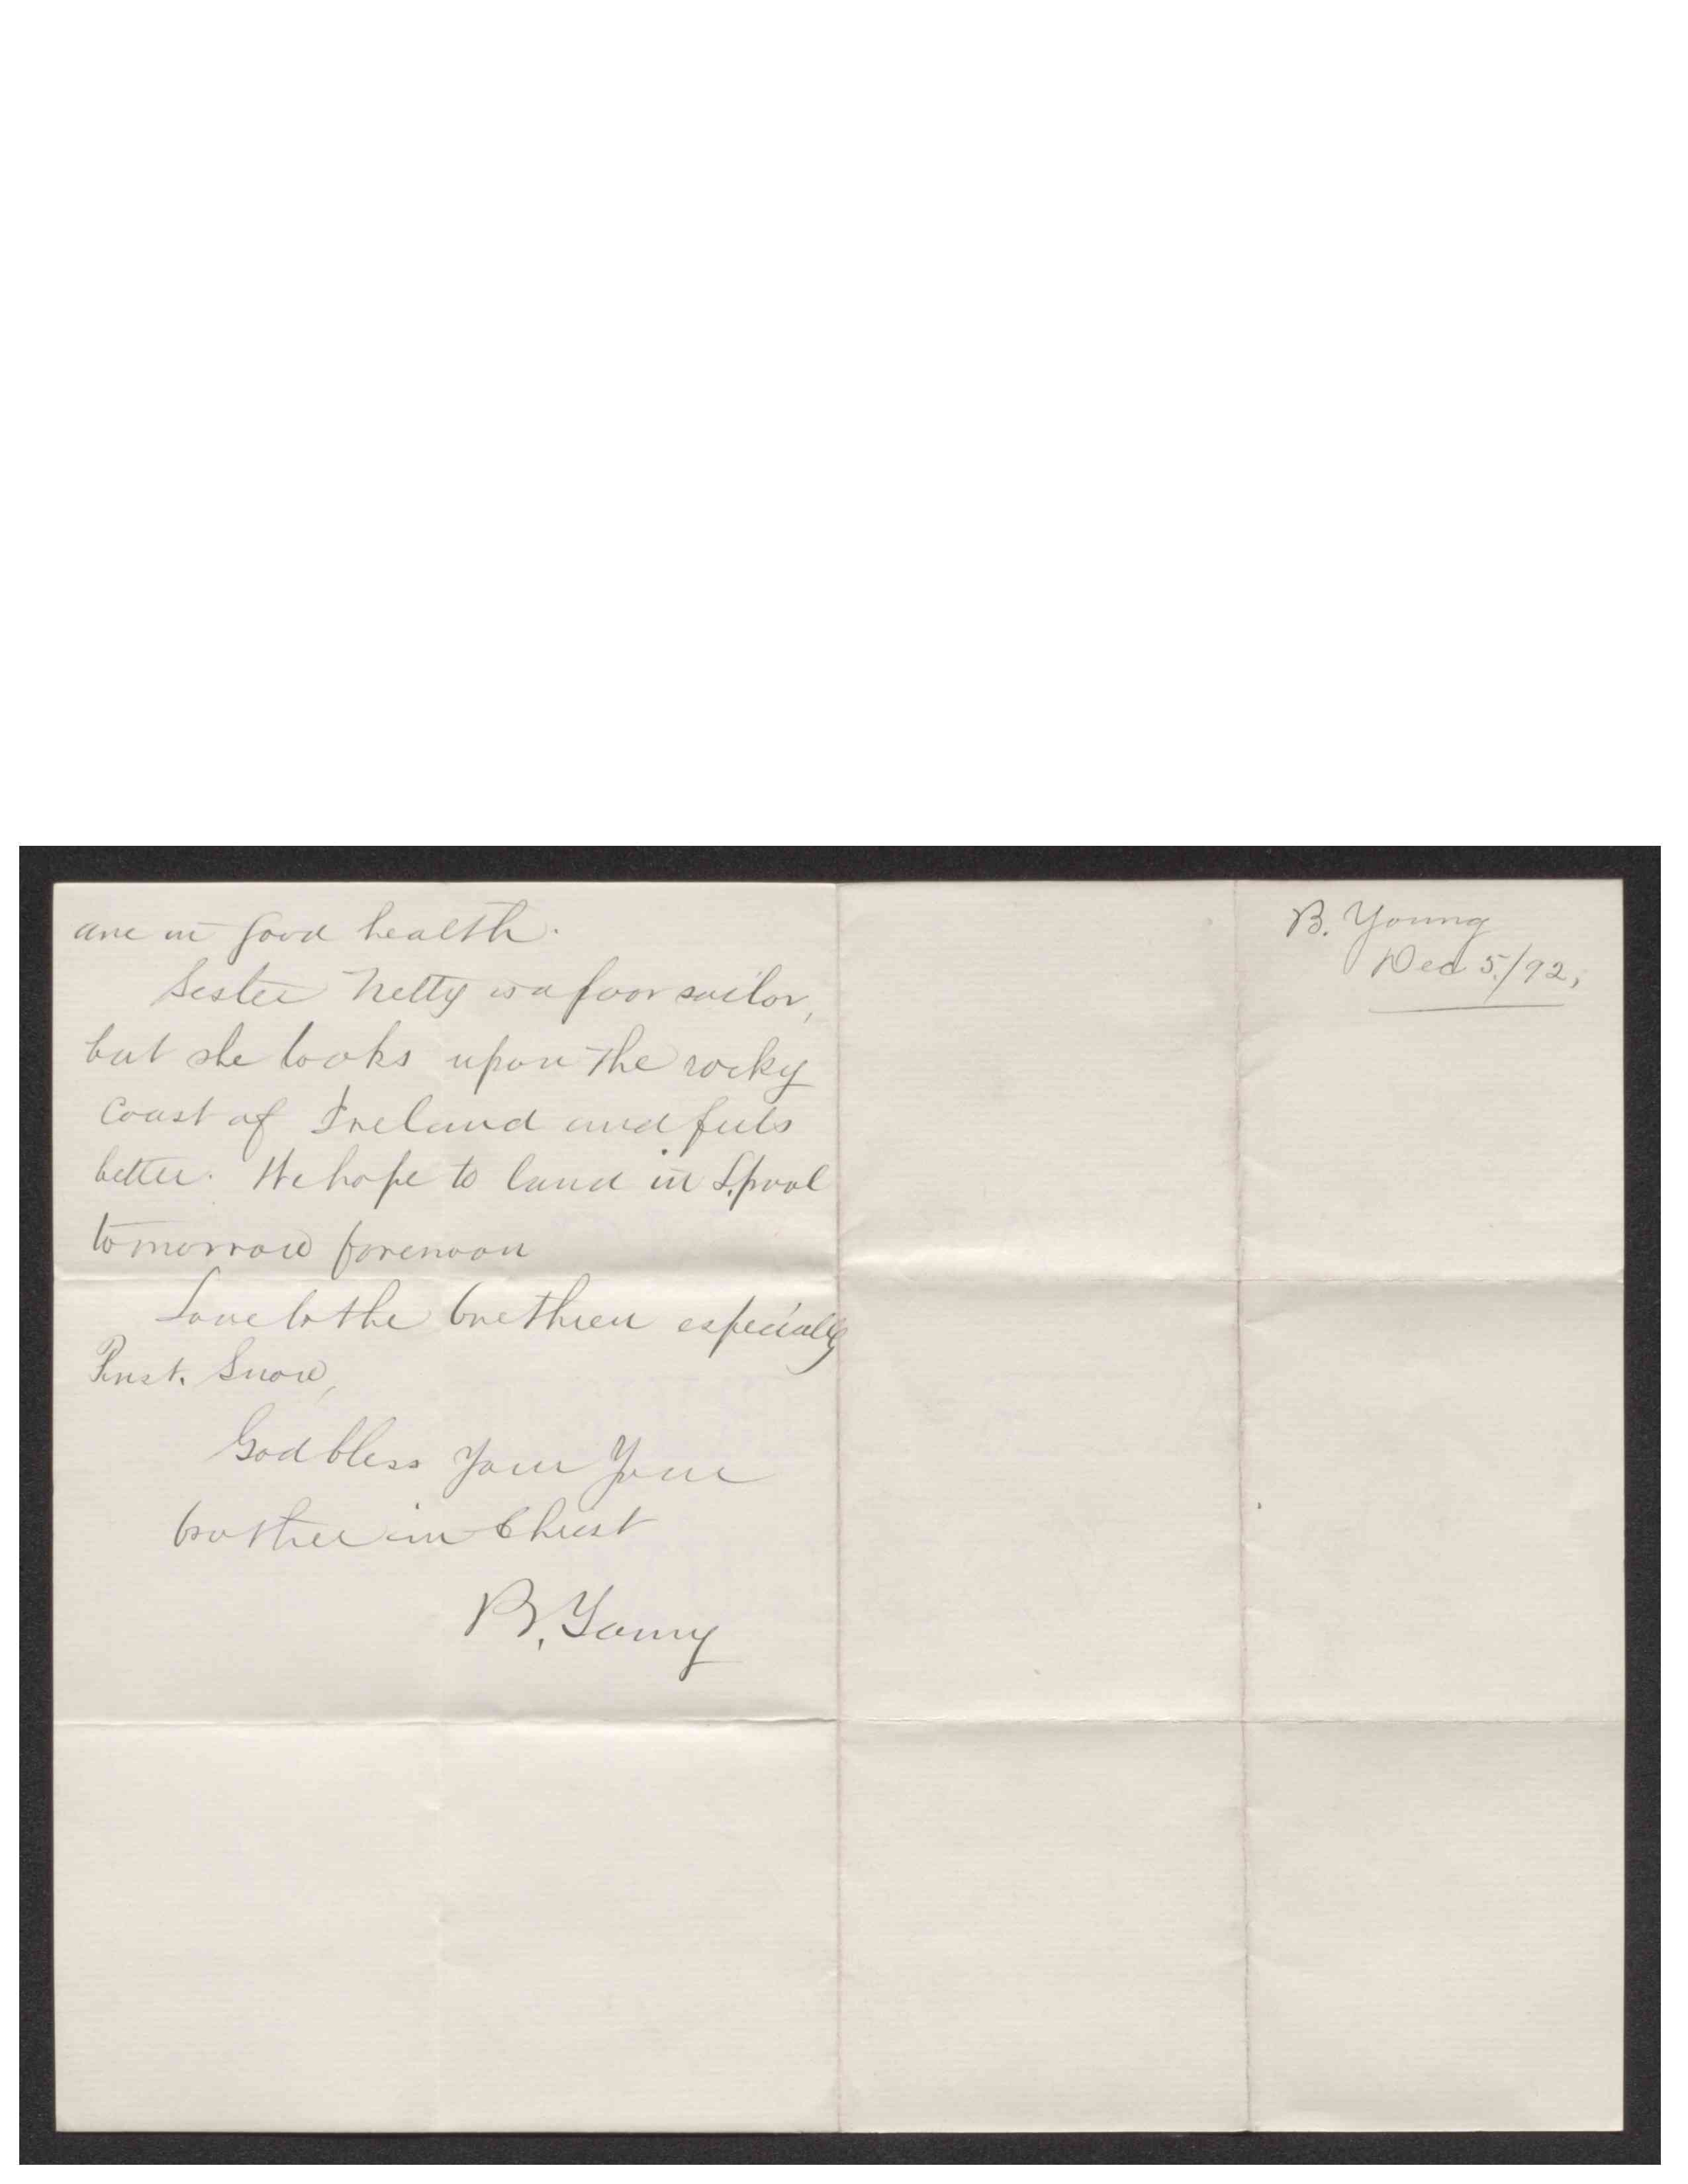 are in good health.
Sister Netty is a poor sailor,
but she looks upon the rocky
coast of Ireland and feels
better. We hope to land in L.pool
tomorrow forenoon
Love to the brethren especially
Prest. Snow,
God bless you Your
brother in Christ
B. Young
B. Young
Dec 5./92,